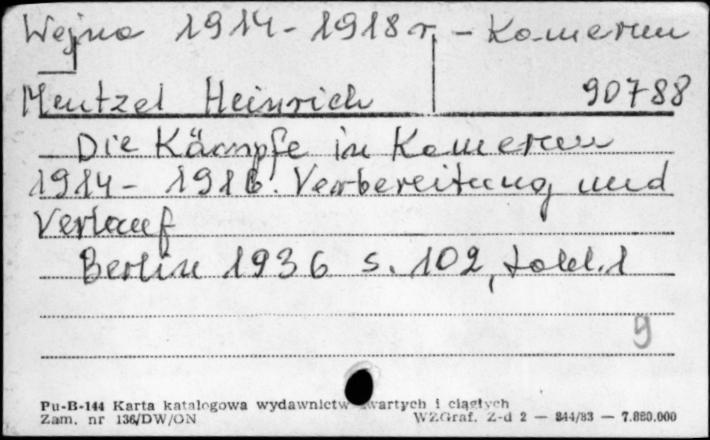 Wojna 1914-1918 r. - Kamerun
Mentzel Heinrich 90788
Die Kämpfe in Kamerun
1914 - 1916. Vorbereitung und
Verlauf
Berlin 1936 s. 102, tabl. 1
9
Pu-B-144 Karta katalogowa wydawnictw zwartych i ciągłych
Zam. nr 136/DW/ON WZGraf. Z-d 2 — 844/83 — 7.880.000